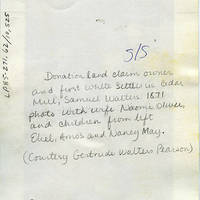 5/5
Donation land claim owner
and first white settler in Cedar
Mill, Samuel Walters 1871
photo with wife Naomi Oliver,
and children from left
Eliel, Amos and Nancy May.
(Courtesy Gertrude Walters Pearson)